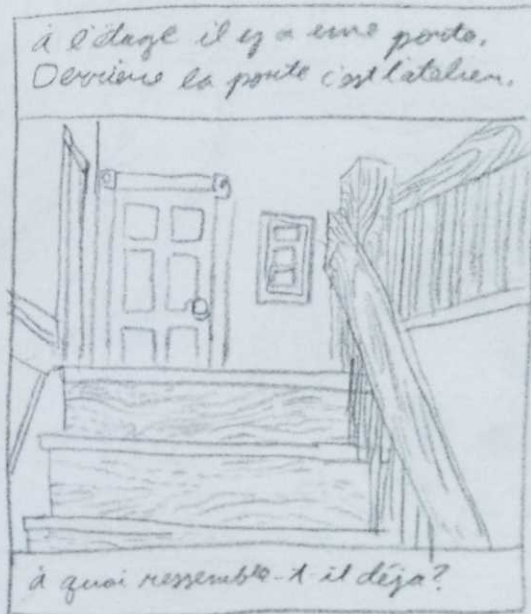 à l'étage il y a une porte.
Derrière la porte c'est l'atelier.
à quoi ressemble-t-il déjà?